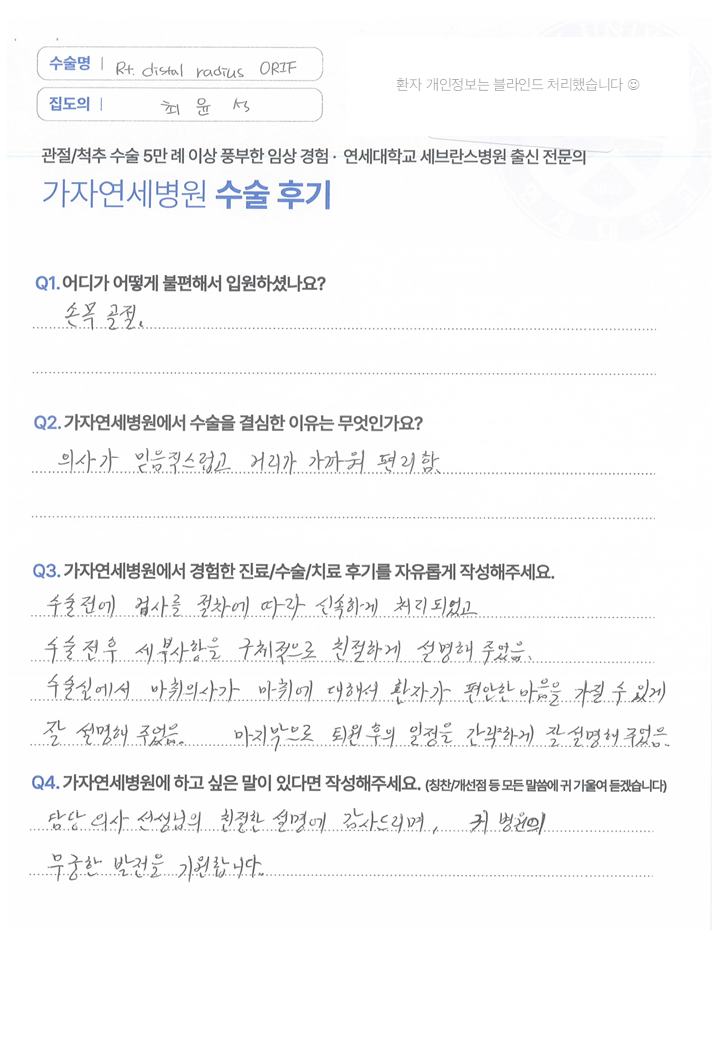 수술명 | Rt. distal radius ORIF
환자 개인정보는 블라인드 처리했습니다 ☺
집도의 | 최 윤 석
관절/척추 수술 5만 례 이상 풍부한 임상 경험 · 연세대학교 세브란스병원 출신 전문의
가자연세병원 수술 후기
Q1. 어디가 어떻게 불편해서 입원하셨나요?
손목 골절.
Q2. 가자연세병원에서 수술을 결심한 이유는 무엇인가요?
의사가 믿음직스럽고 거리가 가까워 편리함.
Q3. 가자연세병원에서 경험한 진료/수술/치료 후기를 자유롭게 작성해주세요.
수술전에 검사를 절차에 따라 신속하게 처리되었고
수술전후 세부사항을 구체적으로 친절하게 설명해 주었음.
수술실에서 마취의사가 마취에 대해서 환자가 편안한 마음을 가질 수 있게
잘 설명해 주었음. 마지막으로 퇴원후의 일정을 간략하게 잘 설명해 주었음.
Q4. 가자연세병원에 하고 싶은 말이 있다면 작성해주세요. (칭찬/개선점 등 모든 말씀에 귀 기울여 듣겠습니다)
담당 의사 선생님의 친절한 설명에 감사드리며, 귀 병원의
무궁한 발전을 기원합니다.